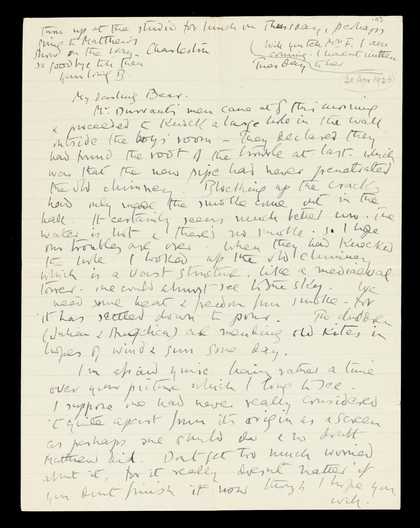 turn up at the studio for lunch on Thursday, perhaps
going to Matthew's
show on the way. Charleston
so goodbye till then
Your loving B
Will you tell Mrs F. I am
coming. I haven't written
to her
Tues day
My darling Bear.
Mr Durrant's men came at 9 this morning
& proceeded to knock a large hole in the wall
outside the boys' room – They declared they
had found the root of the trouble at last which
was that the new pipe had never penetrated
the old chimney. Blocking up the crack
had only made the smoke come out in the
hall. It certainly seems much better now. The
water is hot & there's no smoke. So I hope
our troubles are over. When they had knocked
the hole I looked up the old chimney
which is a vast structure like a mediaeval
tower. One could almost see to the sky. We
need some heat & freedom from smoke for
it has settled down to pour. The children
(Julian & Angelica) are mending old kites in
hopes of wind & sun some day.
I'm afraid you're having rather a time
over your picture which I long to see.
I suppose one had never really considered
it quite apart from its origin as a screen
as perhaps one should do & no doubt
Matthew did. Don't get too much worried
about it, for it really doesn't matter if
you don't finish it now though I hope you
will.